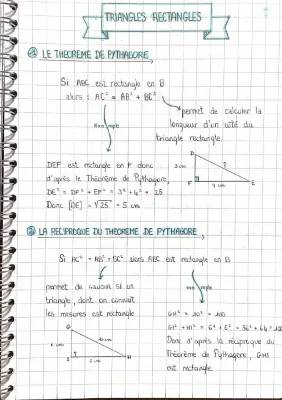 TRIANGLES RECTANGLES
① LE THEOREME DE PYTHAGORE,
Si ABC est rectangle en B
alors : AC² = AB² + BC²
permet de calculer la
longueur d'un côté du
triangle rectangle.
exemple
DEF est rectangle en F donc
d'après le Théorème de Pythagore,
DE² = DF² + EF² = 3² + 4² = 25
Donc [DE] = √25 = 5 cm
D
3 cm
?
F
4 cm
E
② LA RECIPROQUE DU THEOREME DE PYTHAGORE,
Si AC² = AB² + BC² alors ABC est rectangle en B
permet de savoir si un
triangle, dont on connaît
les mesures est rectangle
exemple
GH² = 10² = 100
GI² + HI² = 6² + 8² = 36 + 64 = 100
Donc d'après la réciproque du
Théorème de Pythagore, GHI
est rectangle
G
10 cm
6 cm
I
8 cm
H